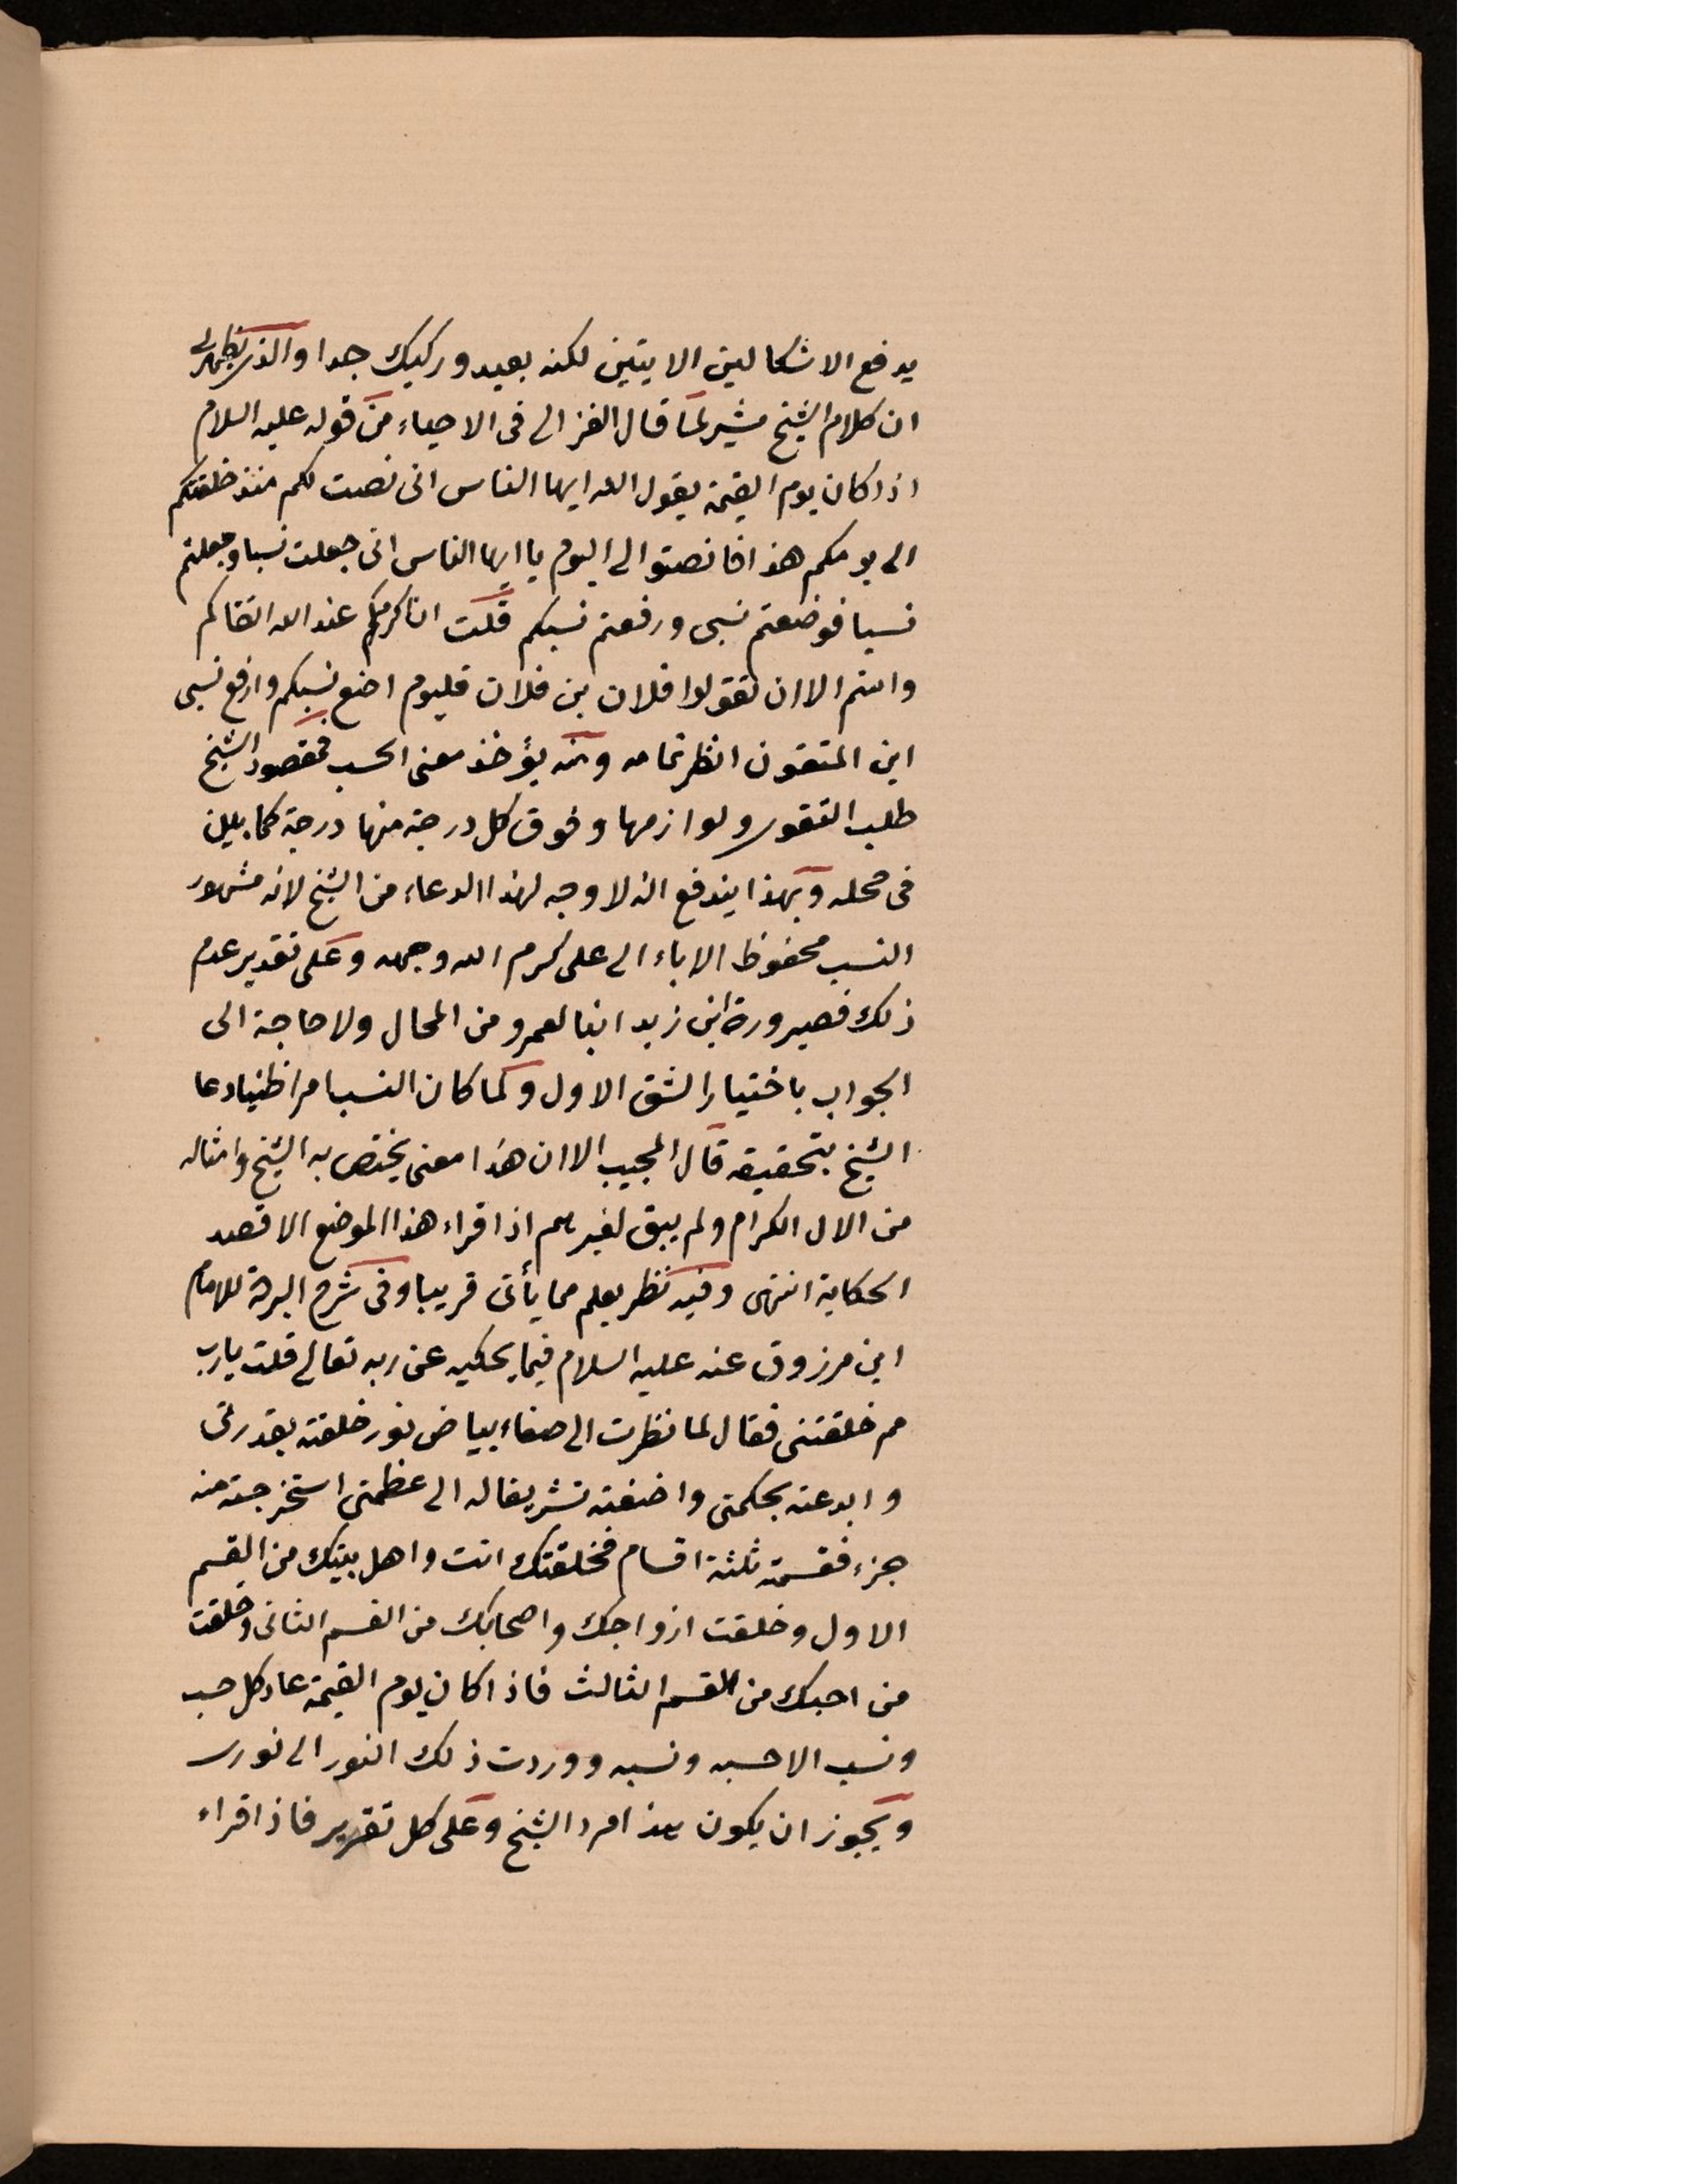 يدفع الاشكالين الايتين لكنه بعيد وركيك جدا والذى يظهر لى
ان كلام الشيخ مشير لما قال الغزالى فى الاحياء من قوله عليه السلام
اذا كان يوم القيمة يقول الله ايها الناس انى نصت لكم منذ خلقتكم
الى يومكم هذا فانصتوا الى اليوم يا ايها الناس انى جعلت نسبا وجعلتم
نسبا فوضعتم نسبى ورفعتم نسبكم قلت ان اكرمكم عند الله اتقاكم
وابيتم الا ان تقولوا فلان بن فلان فليوم اضع نسبكم وارفع نسبى
اين المتقون انظر تمامه ومنه يؤخذ معنى الحسب فمقصود الشيخ
طلب التقوى ولوازمها وفوق كل درجة منها درجة كما بين
فى محله وبهذا يندفع انه لا وجه لهذا الدعاء من الشيخ لانه مشهور
النسب محفوظ الاباء الى على كرم الله وجهه وعلى تقدير عدم
ذلك فصيرورة ابن زيد ابنا لعمرو من المحال ولا حاجة الى
الجواب باختيار الشق الاول ولما كان النسب امرا ظنيا دعا
الشيخ بتحقيقه قال المجيب الا ان هذا معنى يختص به الشيخ وامثاله
من الال الكرام ولم يبق لغيرهم اذا قراء هذا الموضع الا قصد
الحكاية انتهى وفيه نظر يعلم مما يأتى قريبا وفى شرح البردة للامام
ابن مرزوق عنه عليه السلام فيما يحكيه عن ربه تعالى قلت يارب
مم خلقتنى فقال لما نظرت الى صفاء بياض نور خلقته بقدرتى
وابدعته بحكمتى واضفته تشريفا له الى عظمتى استخرجت منه
جزء فقسمته ثلثة اقسام فخلقتك انت واهل بيتك من القسم
الاول وخلقت ازواجك واصحابك من القسم الثانى وخلقت
من احبك من القسم الثالث فاذا كان يوم القيمة عاد كل حسب
ونسب الا حسبه ونسبه ووردت ذلك النور الى نورى
ويجوز ان يكون هذا مراد الشيخ وعلى كل تقدير فاذا قراء